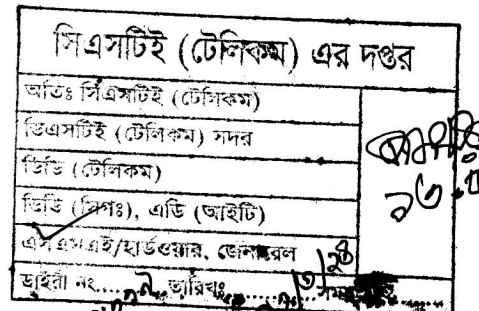 সিএসটিই (টেলিকম) এর দপ্তর
অতিঃ সিএসটিই (টেলিকম)
ডিএসটিই (টেলিকম) সদর
ডিডি (টেলিকম)
ডিডি (সিগঃ), এডি (আইটি)
এসএসএই/হার্ডওয়ার, জেনারেল
ডাইরী নং..... তারিখঃ